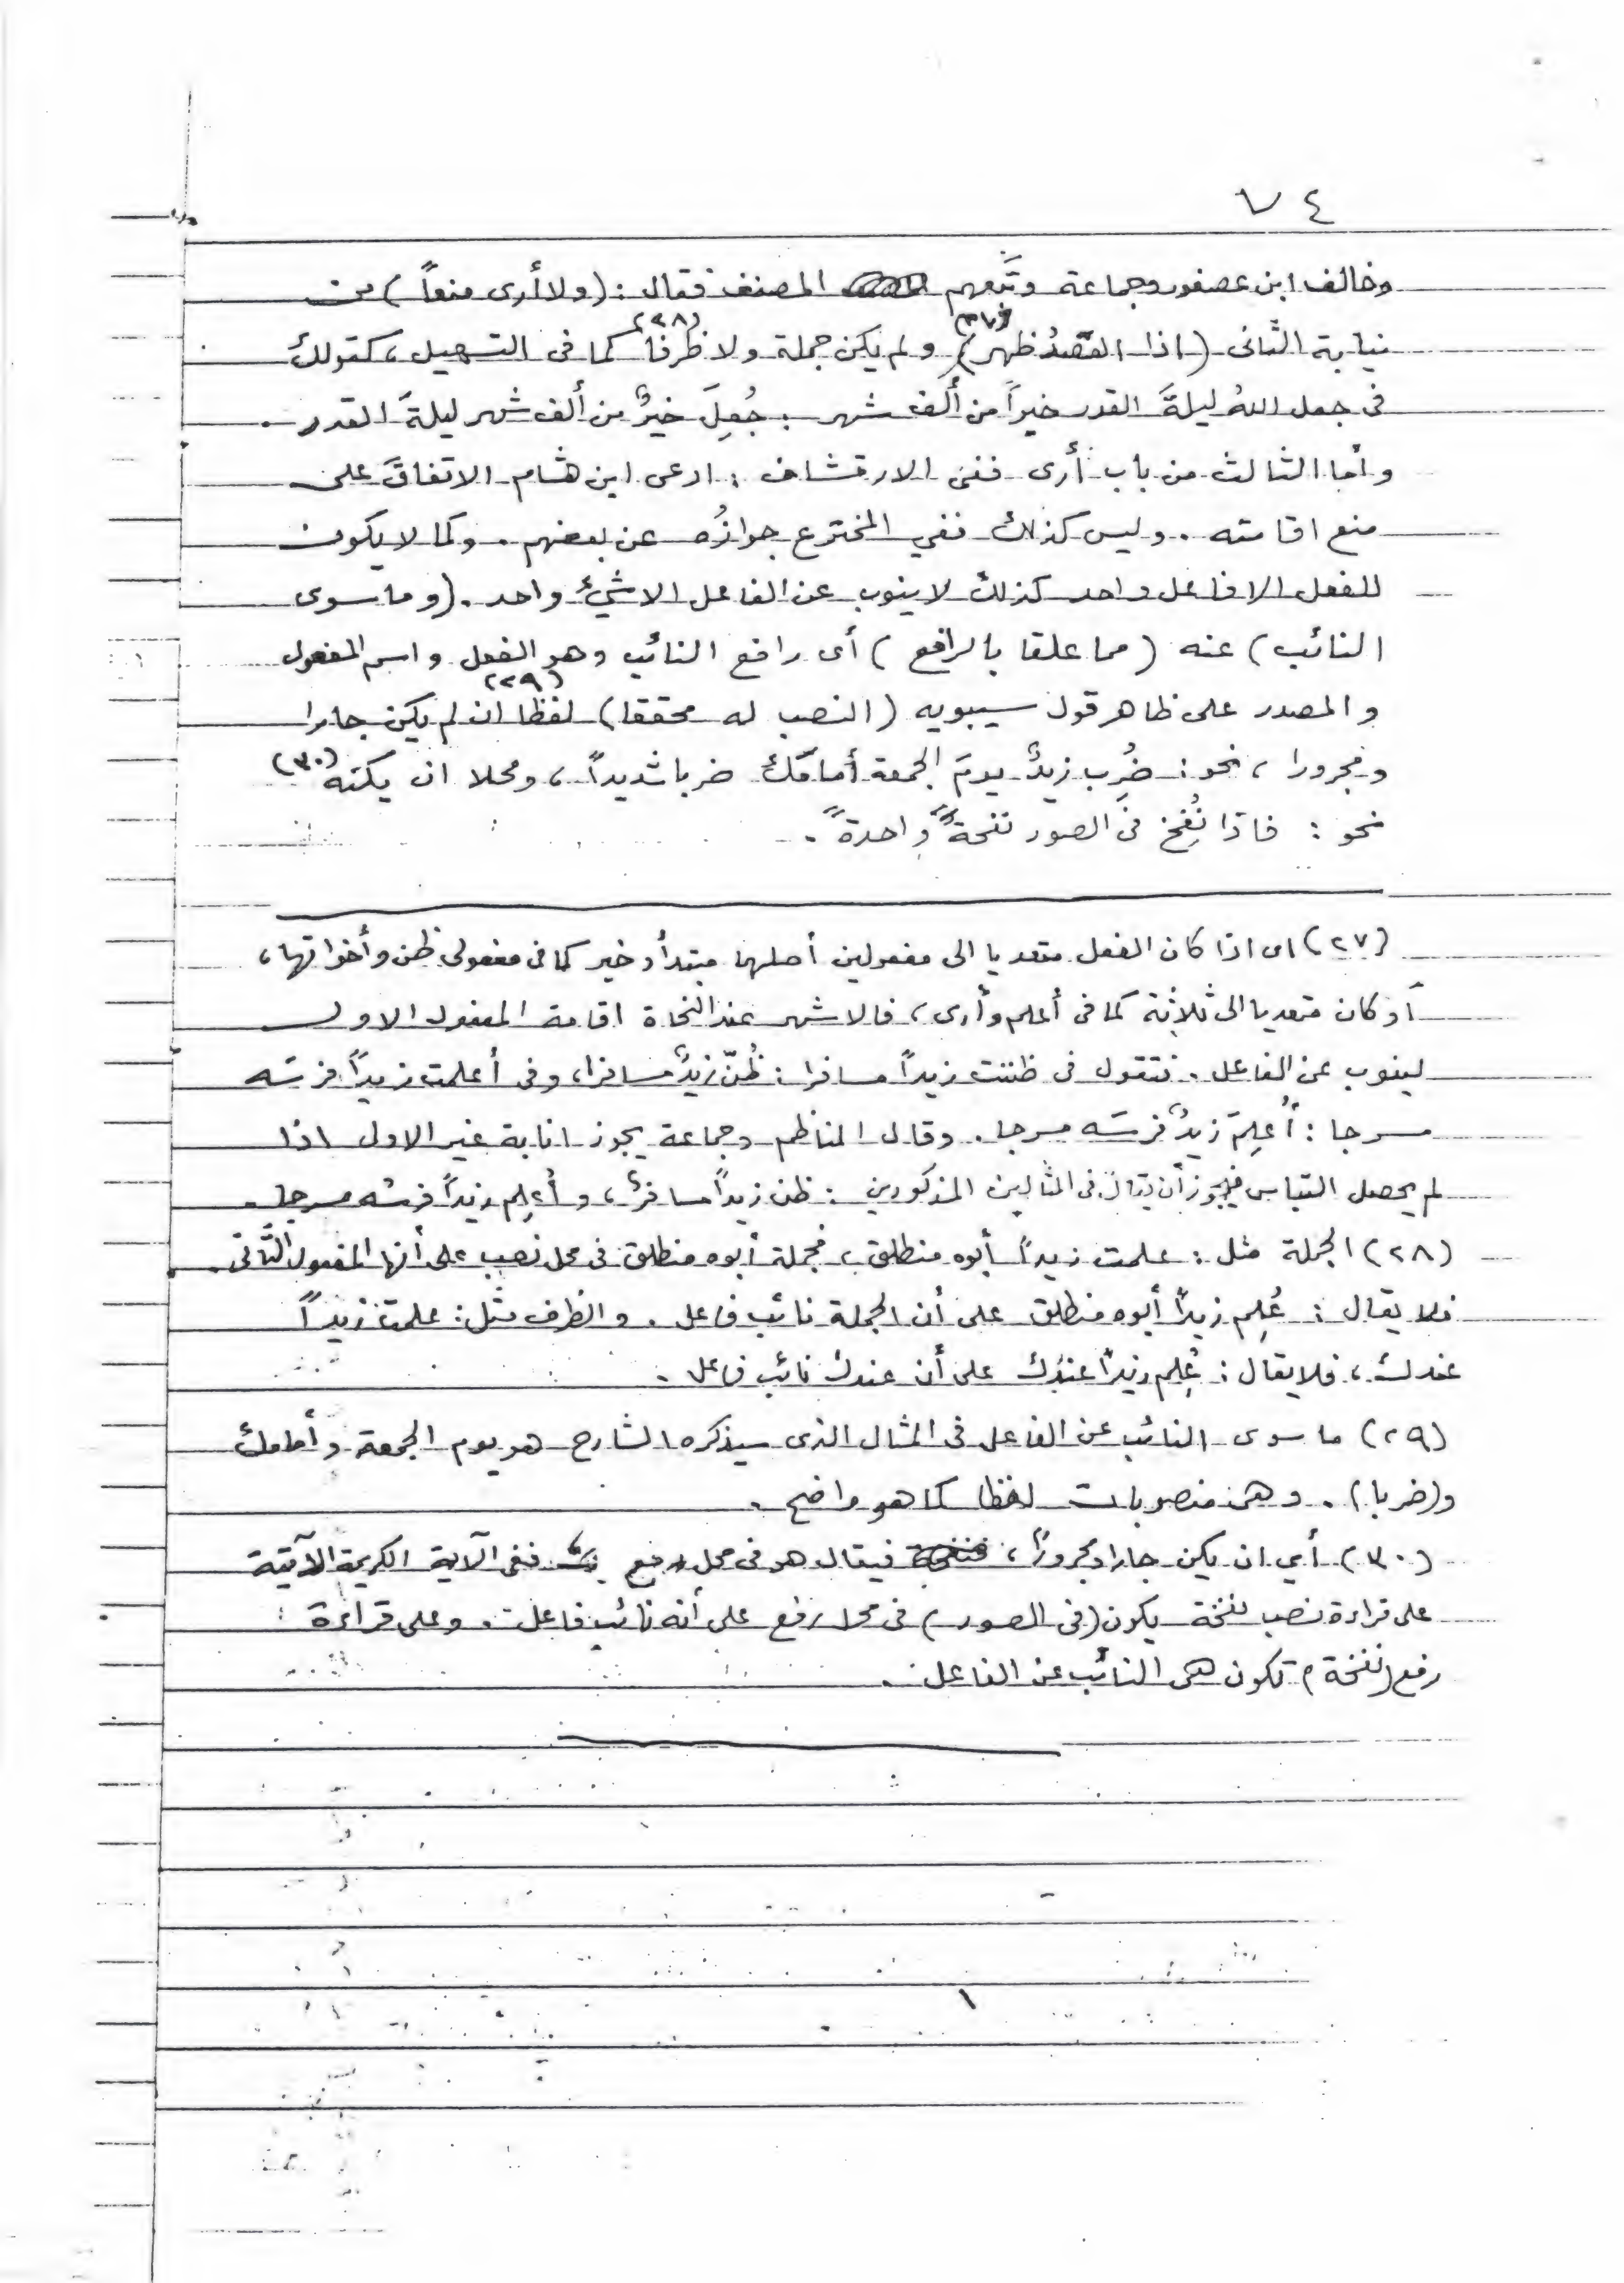 ٧٤
وخالف ابن عصفور وجماعة وتَبِعهم المصنف فقال : (ولا أرى منعاً) من
نيابة الثاني (اذا القصدُ ظهر) (٢٧) ولم يكن جملة ولا ظرفا (٢٨) كما في التسهيل ، كقولك
في جعل اللهُ ليلةَ القدر خيراً من ألف شهر : جُعِلَ خيرٌ من ألف شهر ليلةَ القدر .
وأما الثالث من باب أرى ففي الارتشاف : ادعى ابن هشام الاتفاقَ على
منع اقامته . وليس كذلك ففي المخترع جوازُه عن بعضهم . وكما لا يكون
للفعل الا فاعل واحد كذلك لا ينوب عن الفاعل الا شيءٌ واحد . (وما سوى
النائب) عنه (مما علقا بالرافع) أى رافع النائب وهو الفعل واسم المفعول
والمصدر على ظاهر قول سيبويه (النصب له محققا) (٢٩) لفظا ان لم يكن جارا
ومجرورا ، نحو : ضُرِب زيدٌ يومَ الجمعة أمامَك ضربا شديداً ، ومحلا ان يكنه (٣٠)
نحو : فاذا نُفِخ في الصور نفخةً واحدةً .
(٢٧) اى اذا كان الفعل متعديا الى مفعولين أصلهما مبتدأ وخبر كما في مفعولى ظن وأخواتها ،
أو كان متعديا الى ثلاثة كما في أعلم وأرى ، فالاشهر عند النحاة اقامة المفعول الاول
لينوب عن الفاعل . فتقول في ظننت زيداً مسافرا : ظُنّ زيدٌ مسافرا ، وفي أعلمت زيداً فرسَه
مسرجا : أُعلِمَ زيدٌ فرسَه مسرجا . وقال الناظم وجماعة يجوز انابة غير الاول اذا
لم يحصل التباس فيجوز أن يقال في المثالين المذكورين : ظن زيداً مسافرٌ ، وأُعلِم زيداً فرسُه مسرجا .
(٢٨) الجملة مثل : علمت زيداً أبوه منطلق ، فجملة أبوه منطلق في محل نصب على أنها المفعول الثاني .
فلا يقال : عُلِم زيداً أبوه منطلق على أن الجملة نائب فاعل . والظرف مثل : علمت زيداً
عندك ، فلا يقال : عُلِم زيداً عندَك على أن عندك نائب فاعل .
(٢٩) ما سوى النائب عن الفاعل في المثال الذى سيذكره الشارح هو يوم الجمعة وأمامك
و(ضربا) . وهى منصوبات لفظا كما هو واضح .
(٣٠) أي ان يكن جارا ومجروراً ، فيقال هو في محل رفع ففى الآية الكريمة الآتية
على قراءة نصب نفخة يكون (في الصور) في محل رفع على أنه نائب فاعل . وعلى قراءة :
رفع (نفخة) تكون هى النائب عن الفاعل .